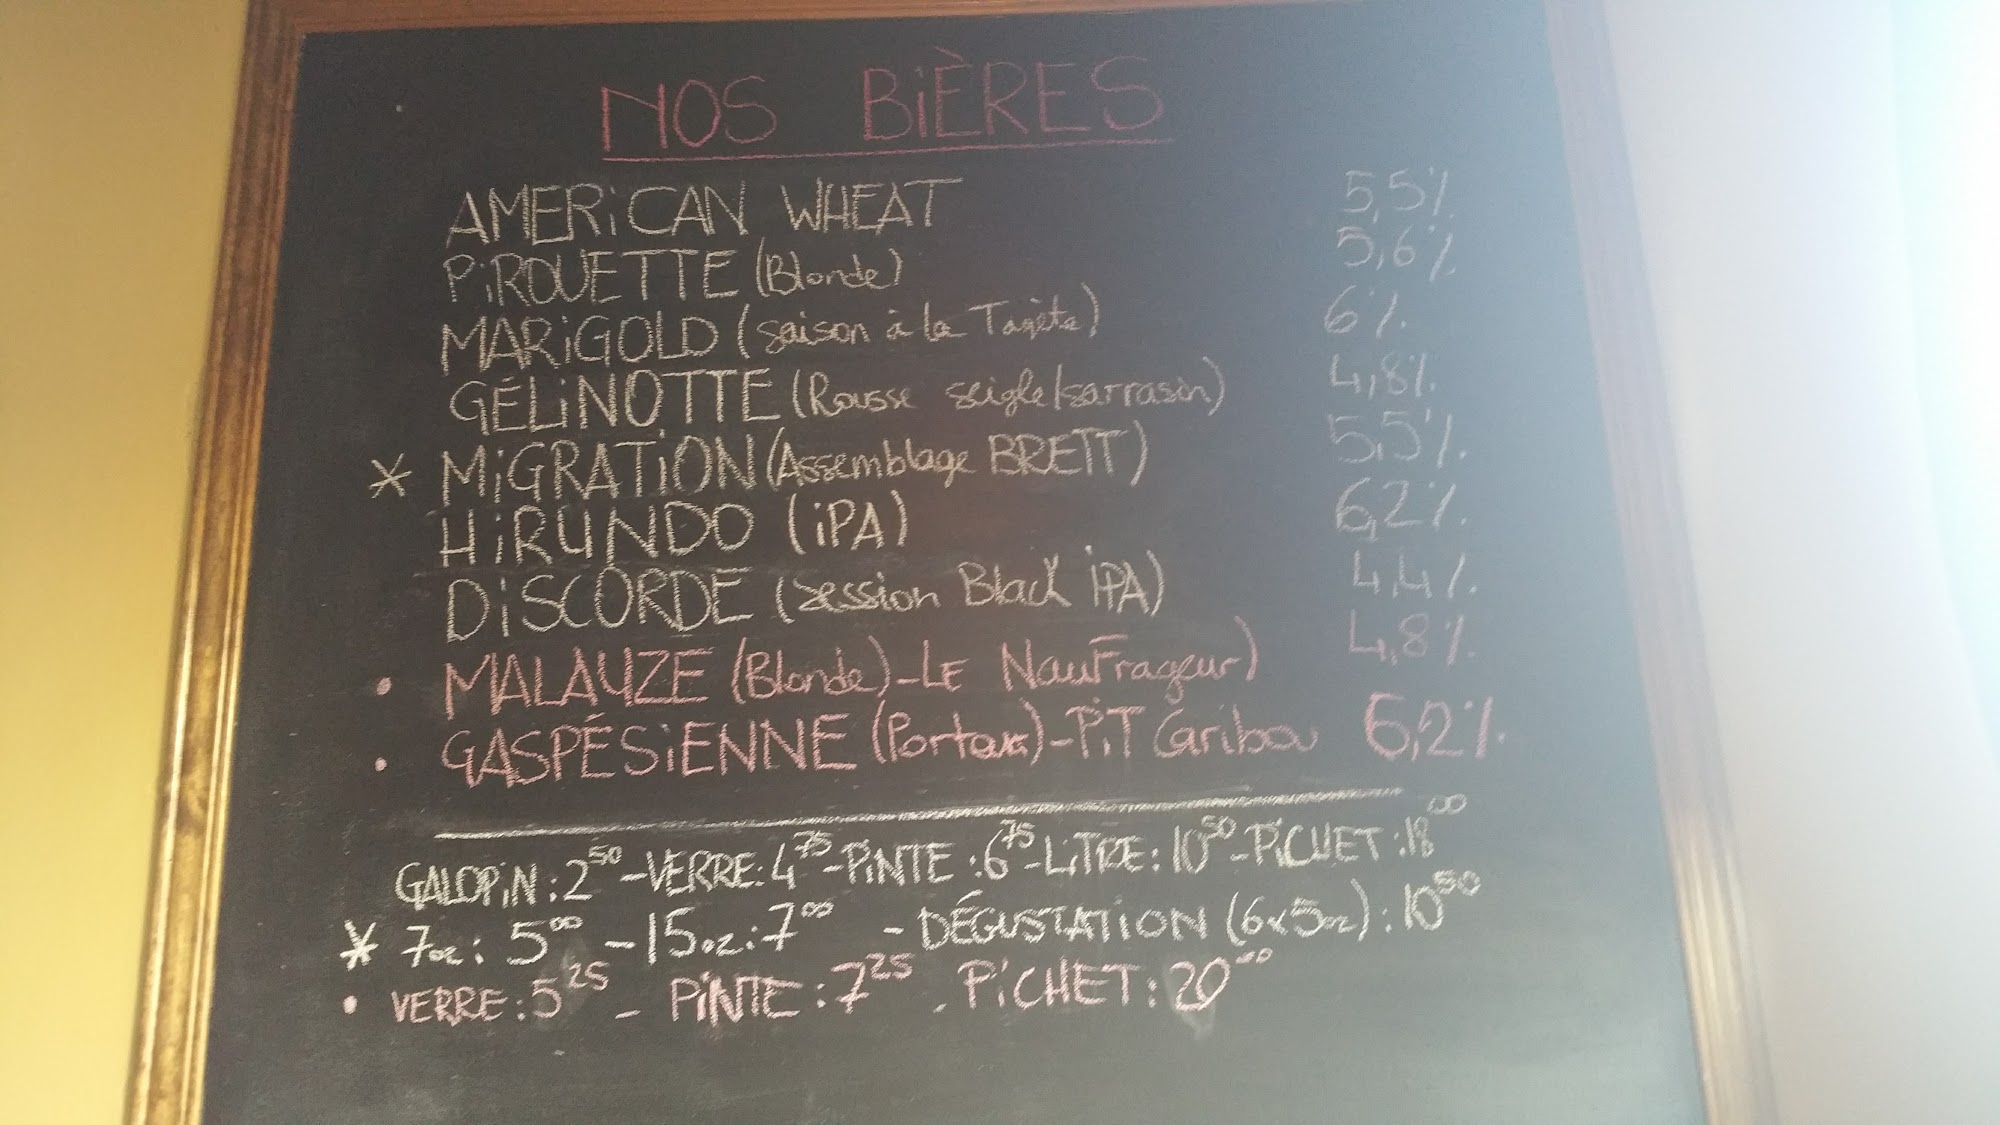 NOS BIÈRES
AMERICAN WHEAT 5,5%
PIROUETTE (Blonde) 5,6%
MARIGOLD (saison à la Tagète) 6%
GÉLINOTTE (Rousse seigle/sarrasin) 4,8%
* MIGRATION (Assemblage BRETT) 5,5%
HIRUNDO (IPA) 6,2%
DISCORDE (session Black IPA) 4,4%
• MALAUZE (Blonde)-LE NAUFrageur) 4,8%
• GASPÉSIENNE (Porter)-PiT Caribou 6,2%
GALOPIN: 2 50 - VERRE: 4 75 - PINTE: 6 75 - LITRE: 10 50 - PICHET: 18 00
* 7oz: 5 00 - 15oz: 7 00 - DÉGUSTATION (6x5oz): 10 50
• VERRE: 5 25 - PINTE: 7 25 - PICHET: 20